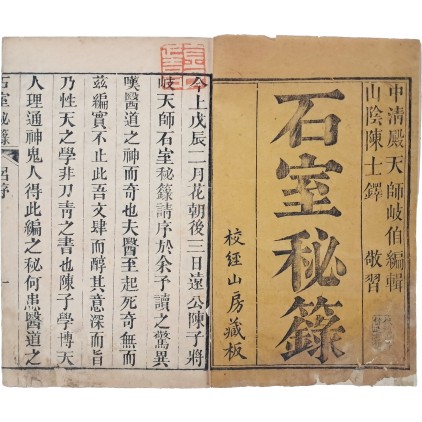 中清殿天師岐伯編輯
山陰陳士鐸 敬習
石室秘籙
校經山房藏板
今上戊辰二月花朝後三日遠公陳子將
岐天師石室秘籙請序於余予讀之驚異
嘆醫道之神而奇也夫醫至起死奇無而
茲編實不止此吾文肆而醇其意深而旨
乃性天之學非刀青之書也陳子學博天
人理通神鬼人得此編之秘何患醫道之
石室秘籙 呂序